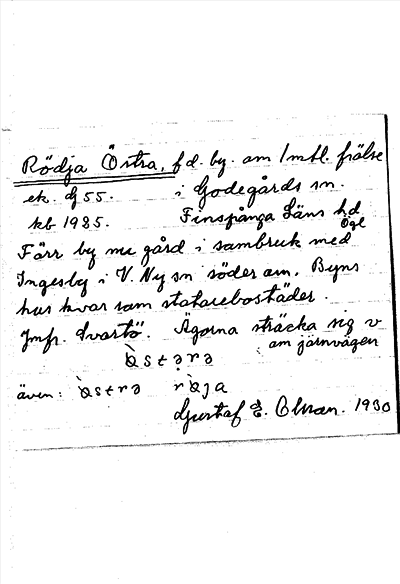 Rödja Östra, f d. by. om 1 mtl. frälse
ek. bl 55. i Godegårds sn.
kb 1985. Finspånga Läns hd
Ögl
Förr by nu gård i sambruk med
Ingesby i V. Ny sn söder om. Byns
hus kvar som statarebostäder.
Jmfr. Svartö. Ägorna sträcka sig v
om järnvägen
ὰstərə
även: ὰstrə rὰja
Gustaf E. Olsson. 1930